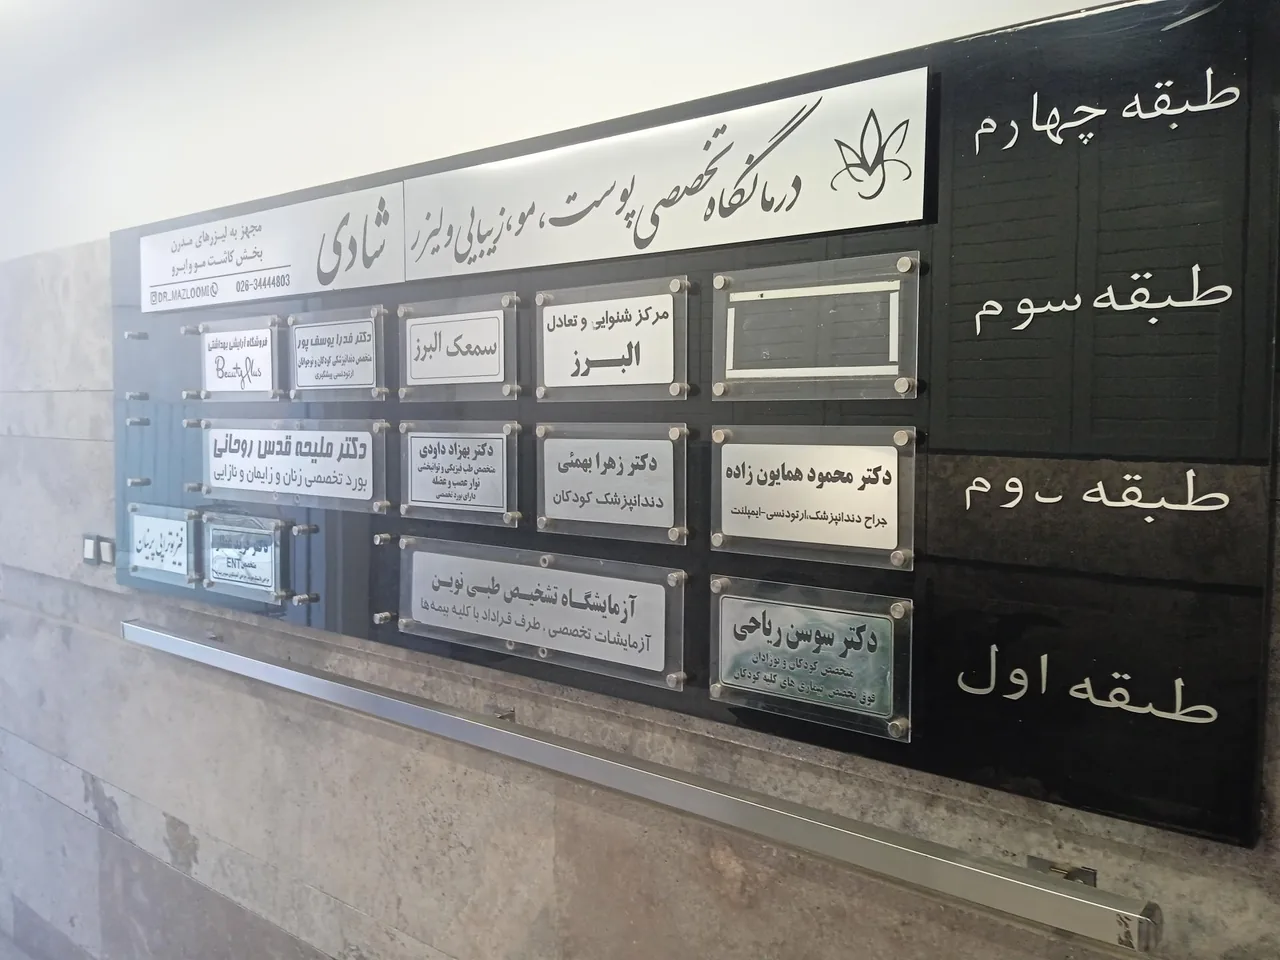 طبقه چهارم
درمانگاه تخصصی پوست، مو، زیبایی و لیزر
شادی
مجهز به لیزرهای مدرن
بخش کاشت مو و ابرو
DR_MAZLOOMI
026-34444803
طبقه سوم
مرکز شنوایی و تعادل
البرز
سمعک البرز
دکتر فدرا یوسف پور
متخصص دندانپزشکی کودکان و نوجوانان
ارتودنسی پیشگیری
فروشگاه آرایشی بهداشتی
Beauty Plus
طبقه دوم
دکتر محمود همایون زاده
جراح دندانپزشک،ارتودنسی-ایمپلنت
دکتر زهرا بهمئی
دندانپزشک کودکان
دکتر بهزاد داودی
متخصص طب فیزیکی و توانبخشی
نوار عصب و عضله
دارای بورد تخصصی
دکتر ملیحه قدس روحانی
بورد تخصصی زنان و زایمان و نازایی
طبقه اول
دکتر سوسن ریاحی
متخصص کودکان و نوزادان
فوق تخصص بیماری های کلیه کودکان
آزمایشگاه تشخیص طبی نوین
آزمایشات تخصصی . طرف قراداد با کلیه بیمه ها
دکتر
متخصص ENT
فیزیوتراپی پرنیان